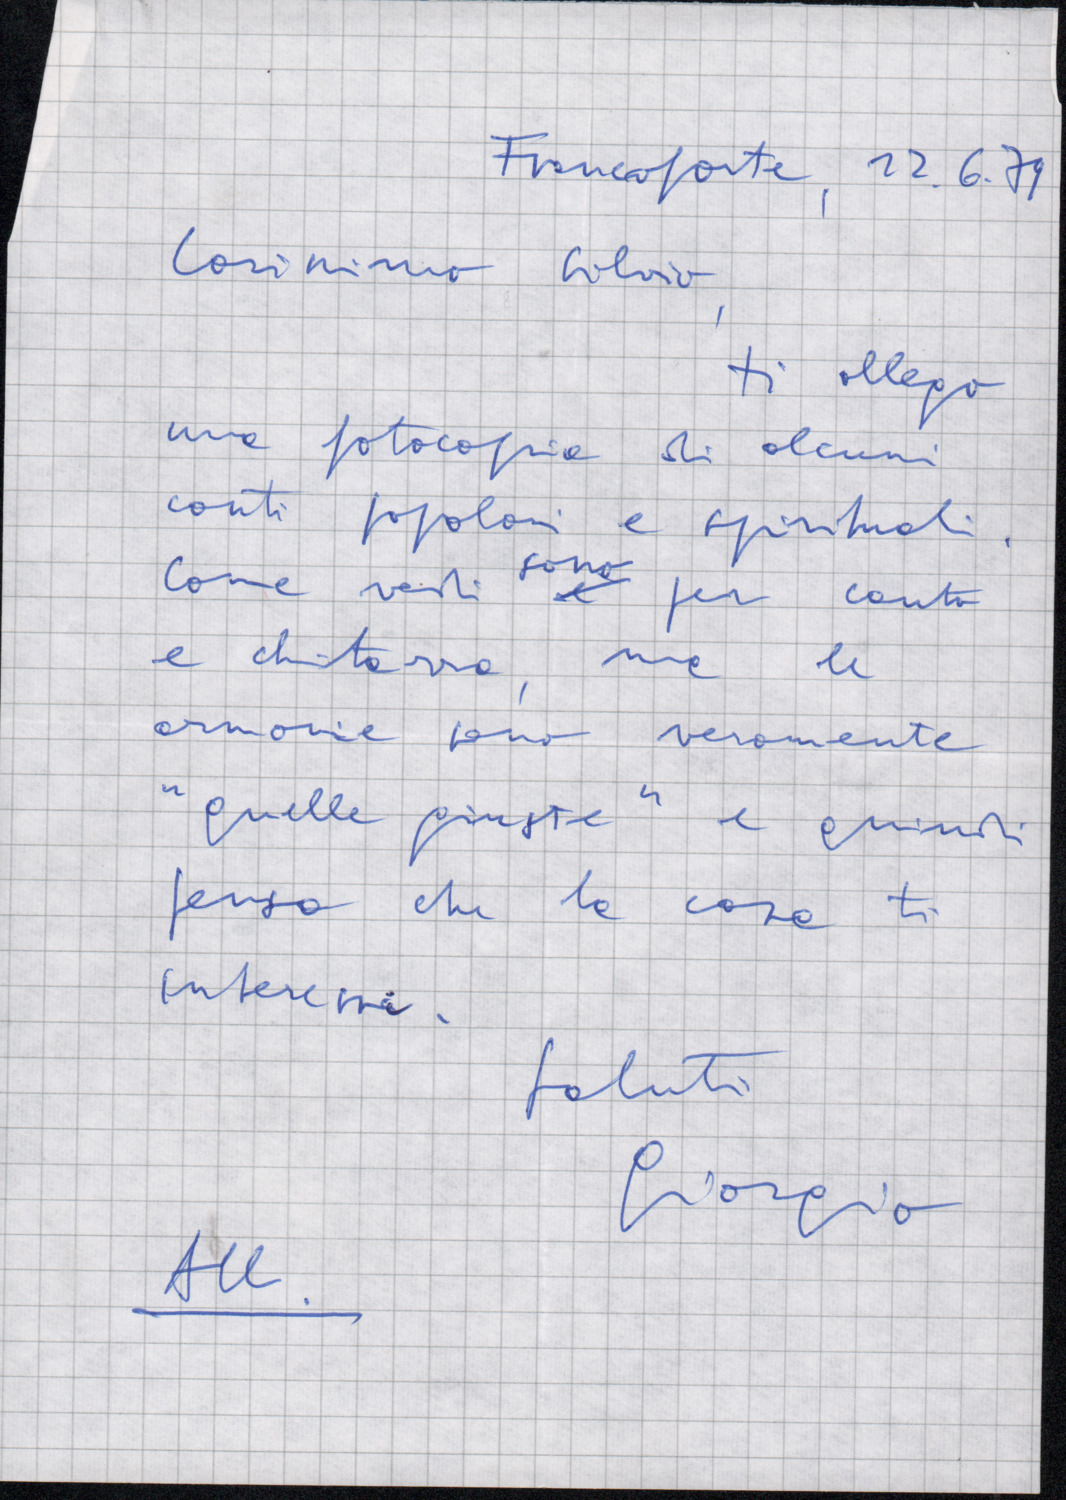 Francoforte, 12.6.79
Carissimo Silvio,
ti allego
una fotocopia di alcuni
canti popolari e spirituali.
Come vedi sono per canto
e chitarra, ma le
armonie sono veramente
"quelle giuste" e quindi
penso che la cosa ti
interessi.
Saluti
Giorgio
All.